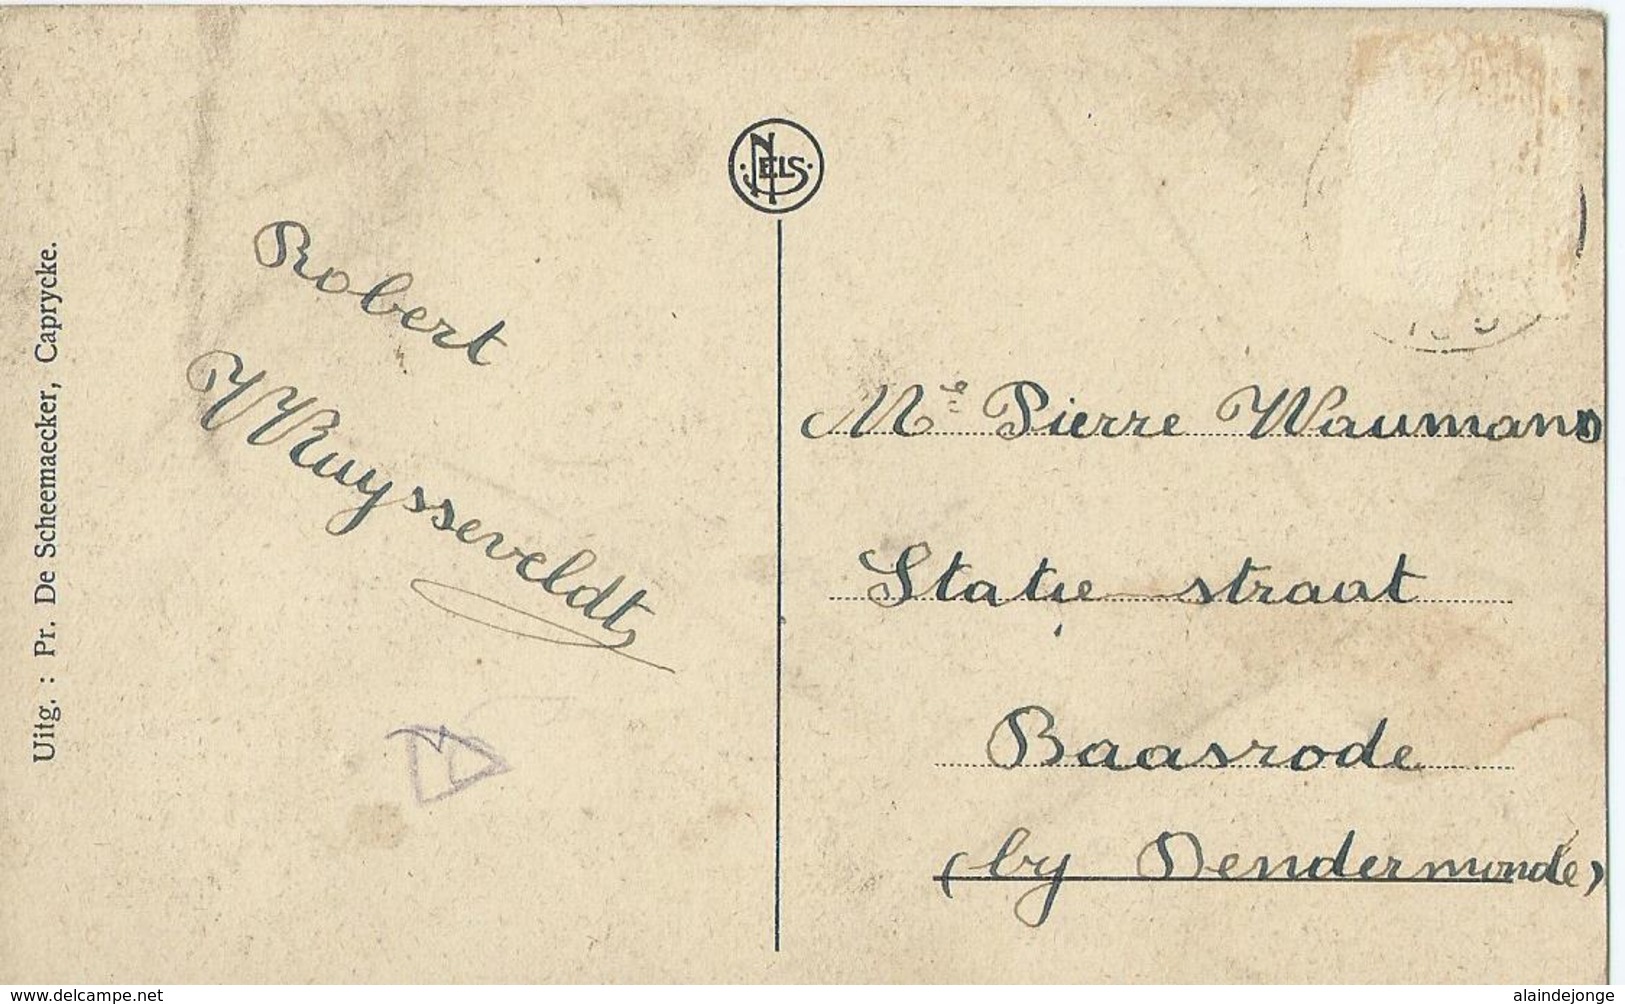 Uitg. : Pr. De Scheemaecker, Caprycke.
NELS
Robert
Ruysseveldt
Mr Pierre Waumans
Statiestraat
Baasrode
(by Dendermonde)
www.delcampe.net
alaindejonge